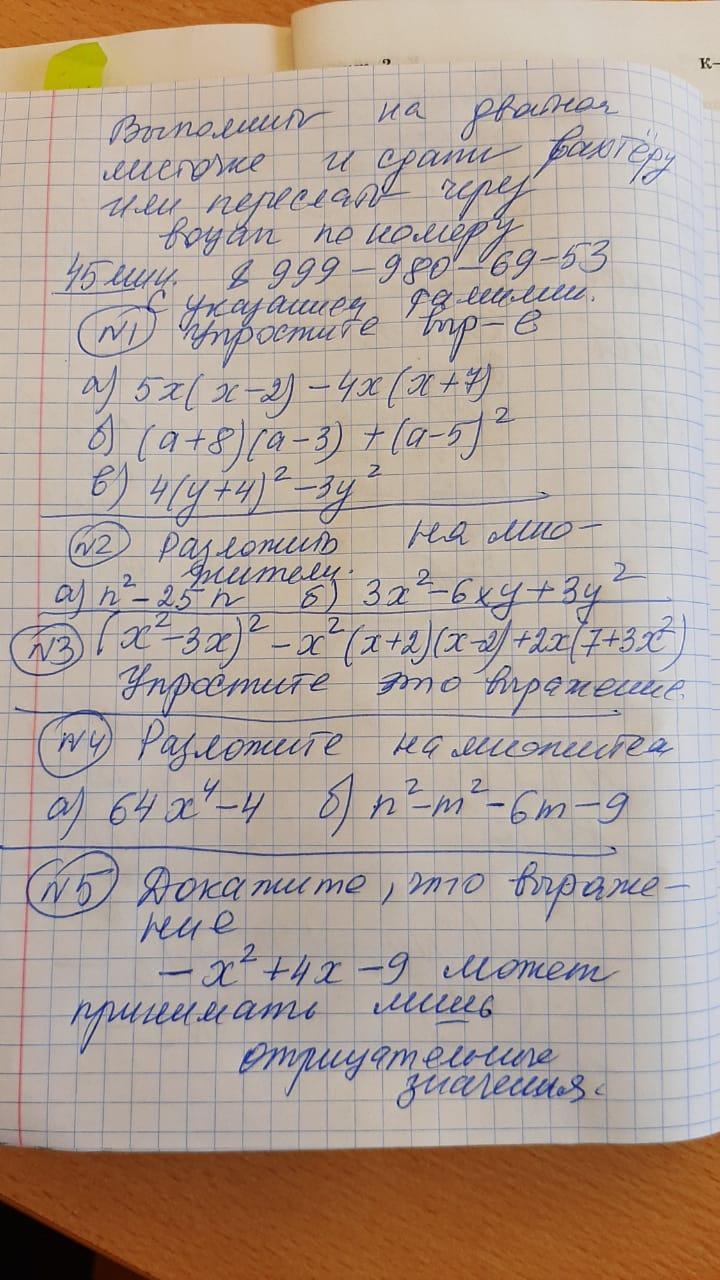 К-
Выполнить на двойном
листочке и сдать вахтёру
или переслать через
воцап по номеру
45 мин. 8 999-980-69-53
с указанием фамилии.
№1 Упростите выр-е
а) 5x(x-2)-4x(x+7)
б) (a+8)(a-3)+(a-5)²
в) 4(y+4)²-3y²
№2 Разложить на мно-
жители.
а) n²-25n б) 3x²-6xy+3y²
№3 (x²-3x)²-x²(x+2)(x-2)+2x(7+3x²)
Упростите это выражение.
№4 Разложите на множител
а) 64x⁴-4 б) n²-m²-6m-9
№5 Докажите, что выраже-
ние
-x²+4x-9 может
принимать лишь
отрицательные
значения.